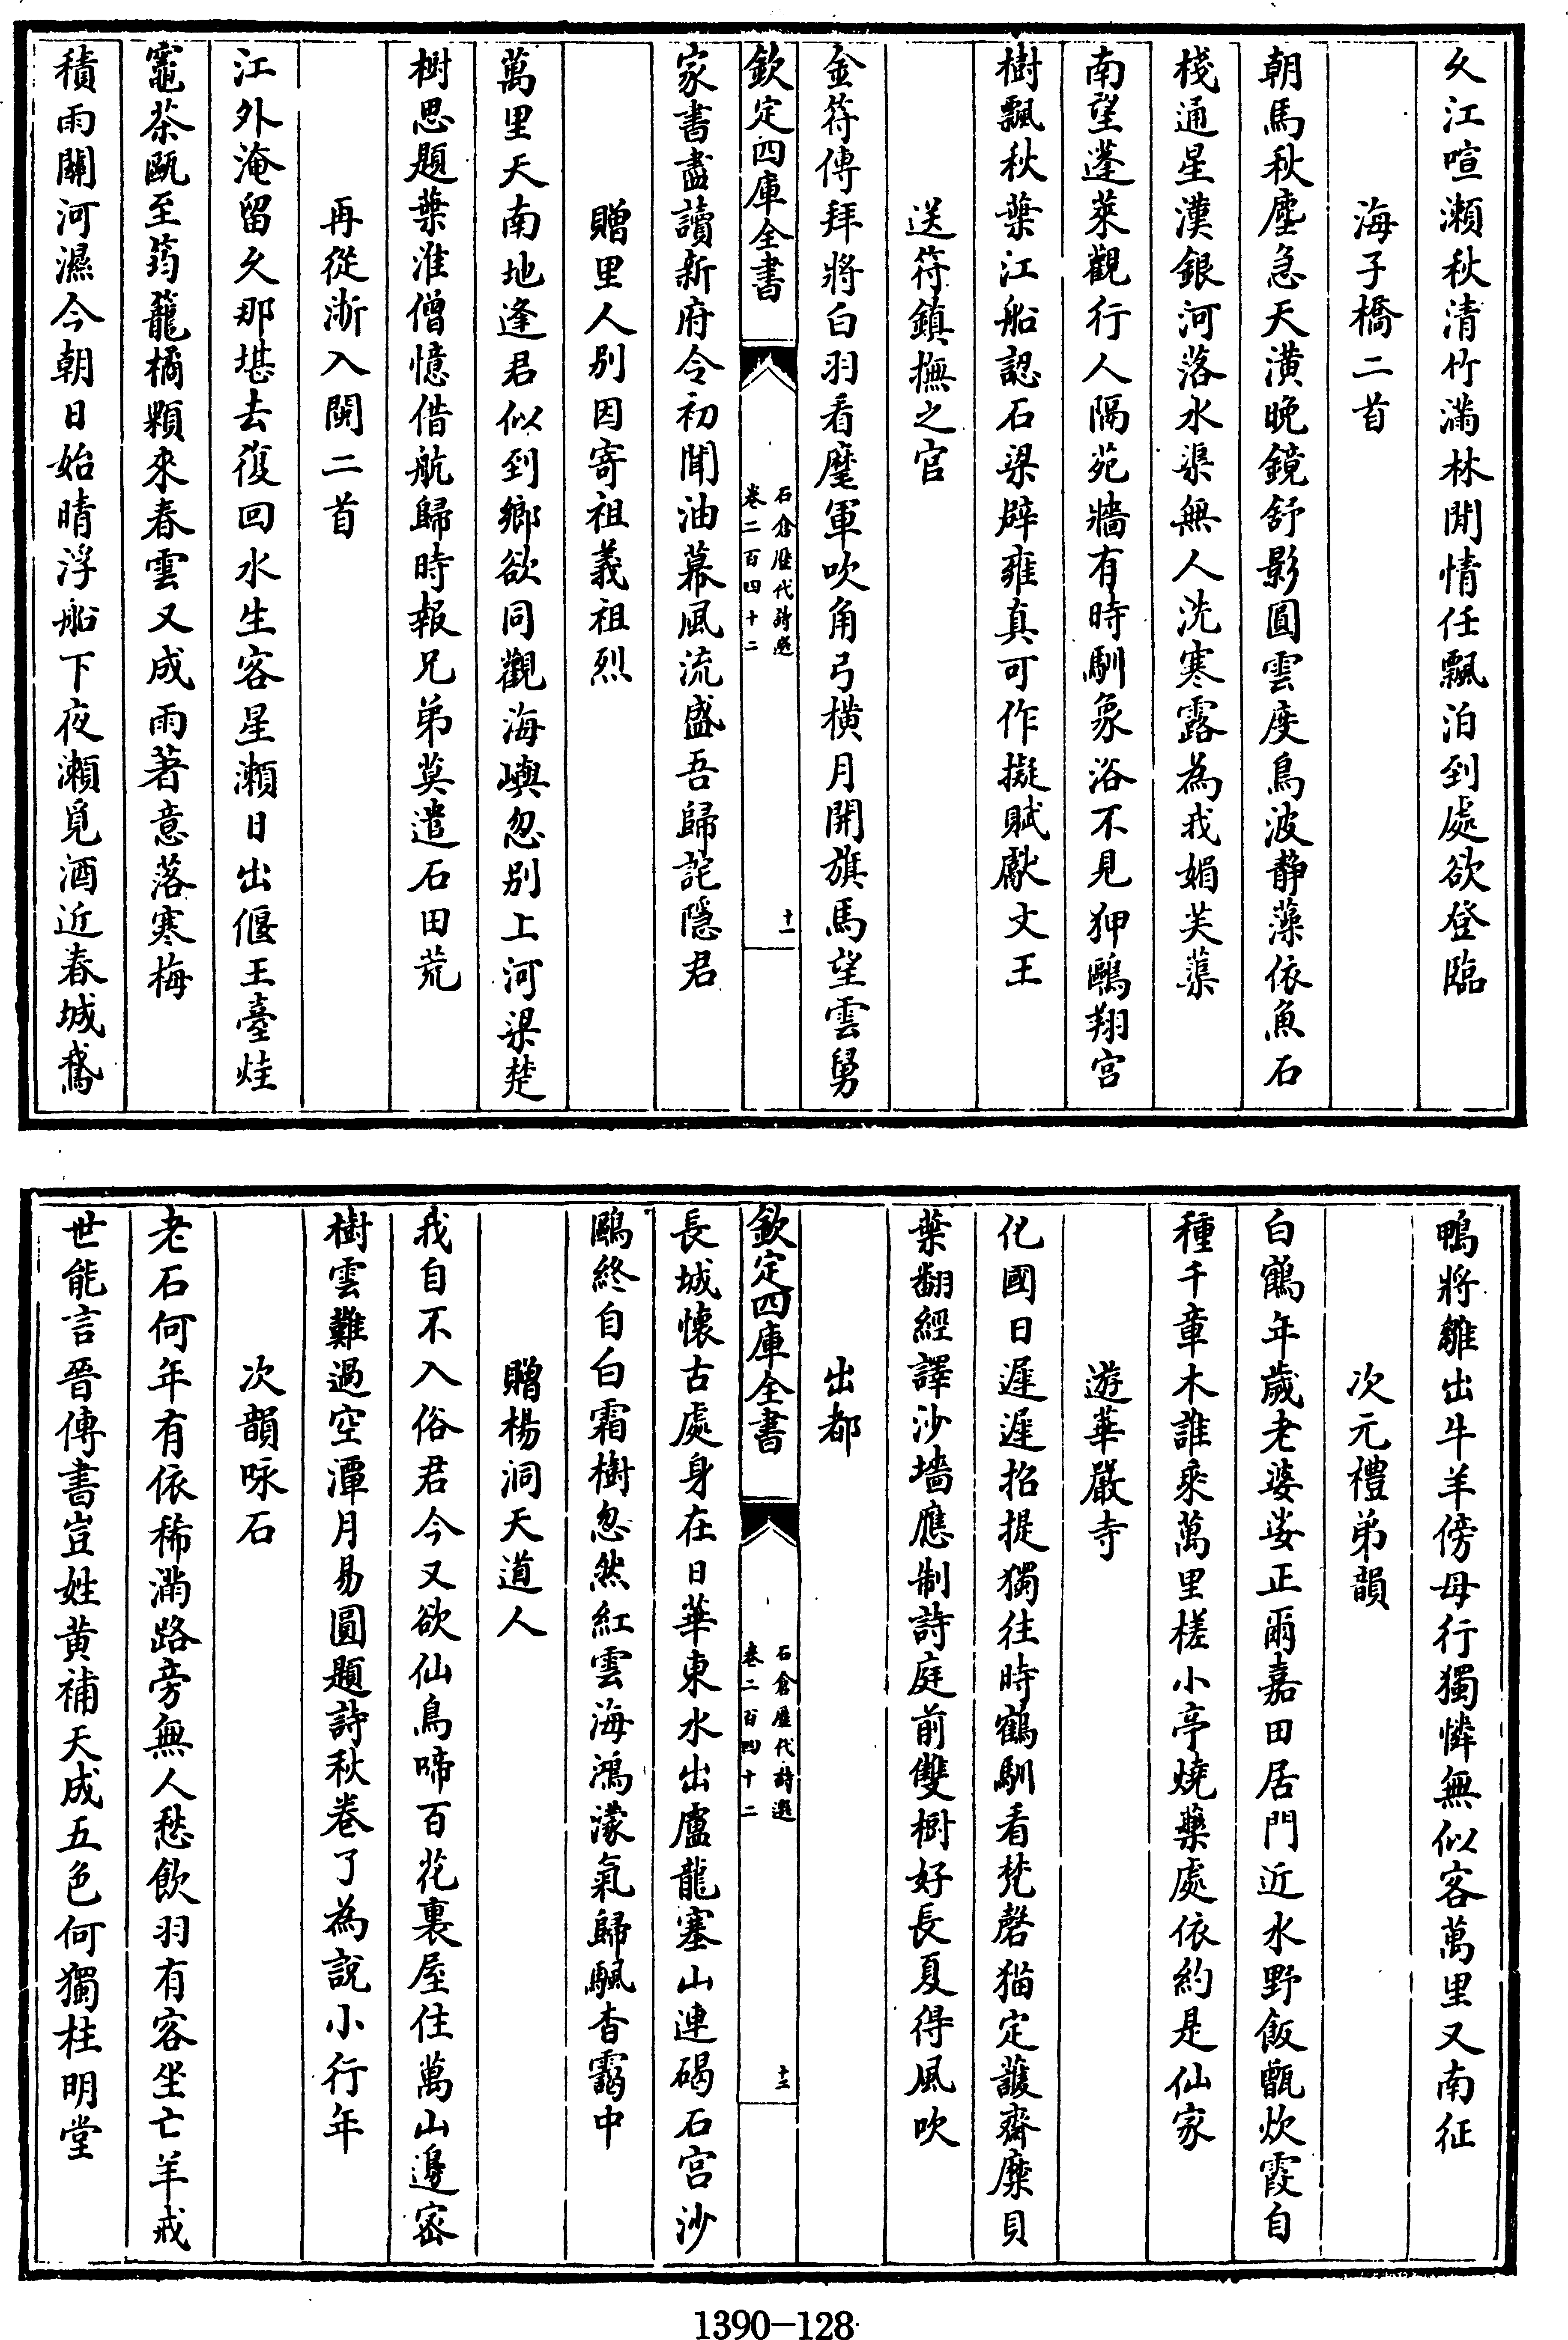 久江喧瀬秋清竹滿林閒情任飄泊到處欲登臨
海子橋二首
朝馬秋塵急天潢晩鏡舒影圓雲度鳥波静藻依魚石
棧通星漢銀河落水渠無人洗寒露為我媚芙蕖
南望蓬萊觀行人隔苑牆有時馴象浴不見狎鷗翔宫
樹飄秋葉江船認石梁辟雍真可作擬賦獻文王
送符鎮撫之官
金符傳拜將白羽看麾軍吹角弓横月開旗馬望雲舅
欽定四庫全書
石倉歴代詩選
卷二百四十二
十一
家書盡讀新府令初聞油幕風流盛吾歸詫隱君
贈里人别因寄祖義祖烈
萬里天南地逢君似到鄉欲同觀海嶼忽别上河梁楚
樹思題葉淮僧憶借航歸時報兄弟莫遣石田荒
再從浙入閩二首
江外淹留久那堪去復回水生客星瀬日出偃王臺炷
竈茶甌至筠籠橘顆來春雲又成雨著意落寒梅
積雨關河濕今朝日始晴浮船下夜瀬覓酒近春城鵞
鴨將雛出牛羊傍母行獨憐無似客萬里又南征
次元禮弟韻
白鶴年歲老婆娑正爾嘉田居門近水野飯甑炊霞自
種千章木誰乘萬里槎小亭燒藥處依約是仙家
遊華嚴寺
化國日遲遲招提獨往時鶴馴看梵磬猫定護齋糜貝
葉翻經譯沙墻應制詩庭前雙樹好長夏得風吹
出都
欽定四庫全書
石倉歴代詩選
卷二百四十二
十二
長城懷古處身在日華東水出盧龍塞山連碣石宫沙
鷗終自白霜樹忽然紅雲海鴻濛氣歸颿杳靄中
贈楊洞天道人
我自不入俗君今又欲仙鳥啼百花裏屋住萬山邊密
樹雲難過空潭月易圓題詩秋卷了為說小行年
次韻咏石
老石何年有依稀滿路旁無人愁飲羽有客坐亡羊戒
世能言晉傳書豈姓黄補天成五色何獨柱明堂
1390-128